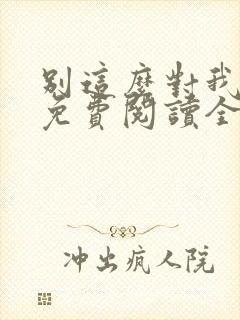 別這麼對我
免費閱讀全
冲出疯人院